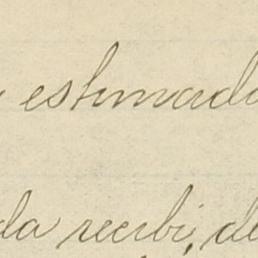 estimado
da recibi, de